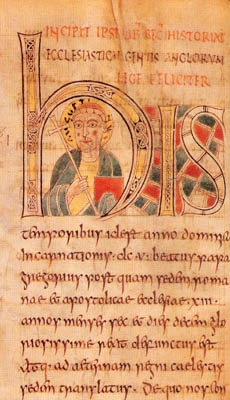 INCIPIT IPSIUS HISTORIAE
ECCLESIASTICAE GENTIS ANGLORUM
LEGE FELICITER
hIS
temporibus id est anno dominicae
incarnationis · dc · v · beatus papa
gregorius postquam sedem roma
nae et apostolicae ecclesiae · xiii ·
annos menses sex et dies decem glo
riosissime rexit defunctus est
atque ad aeternam regni caelestis
sedem translatus. De quo nos con